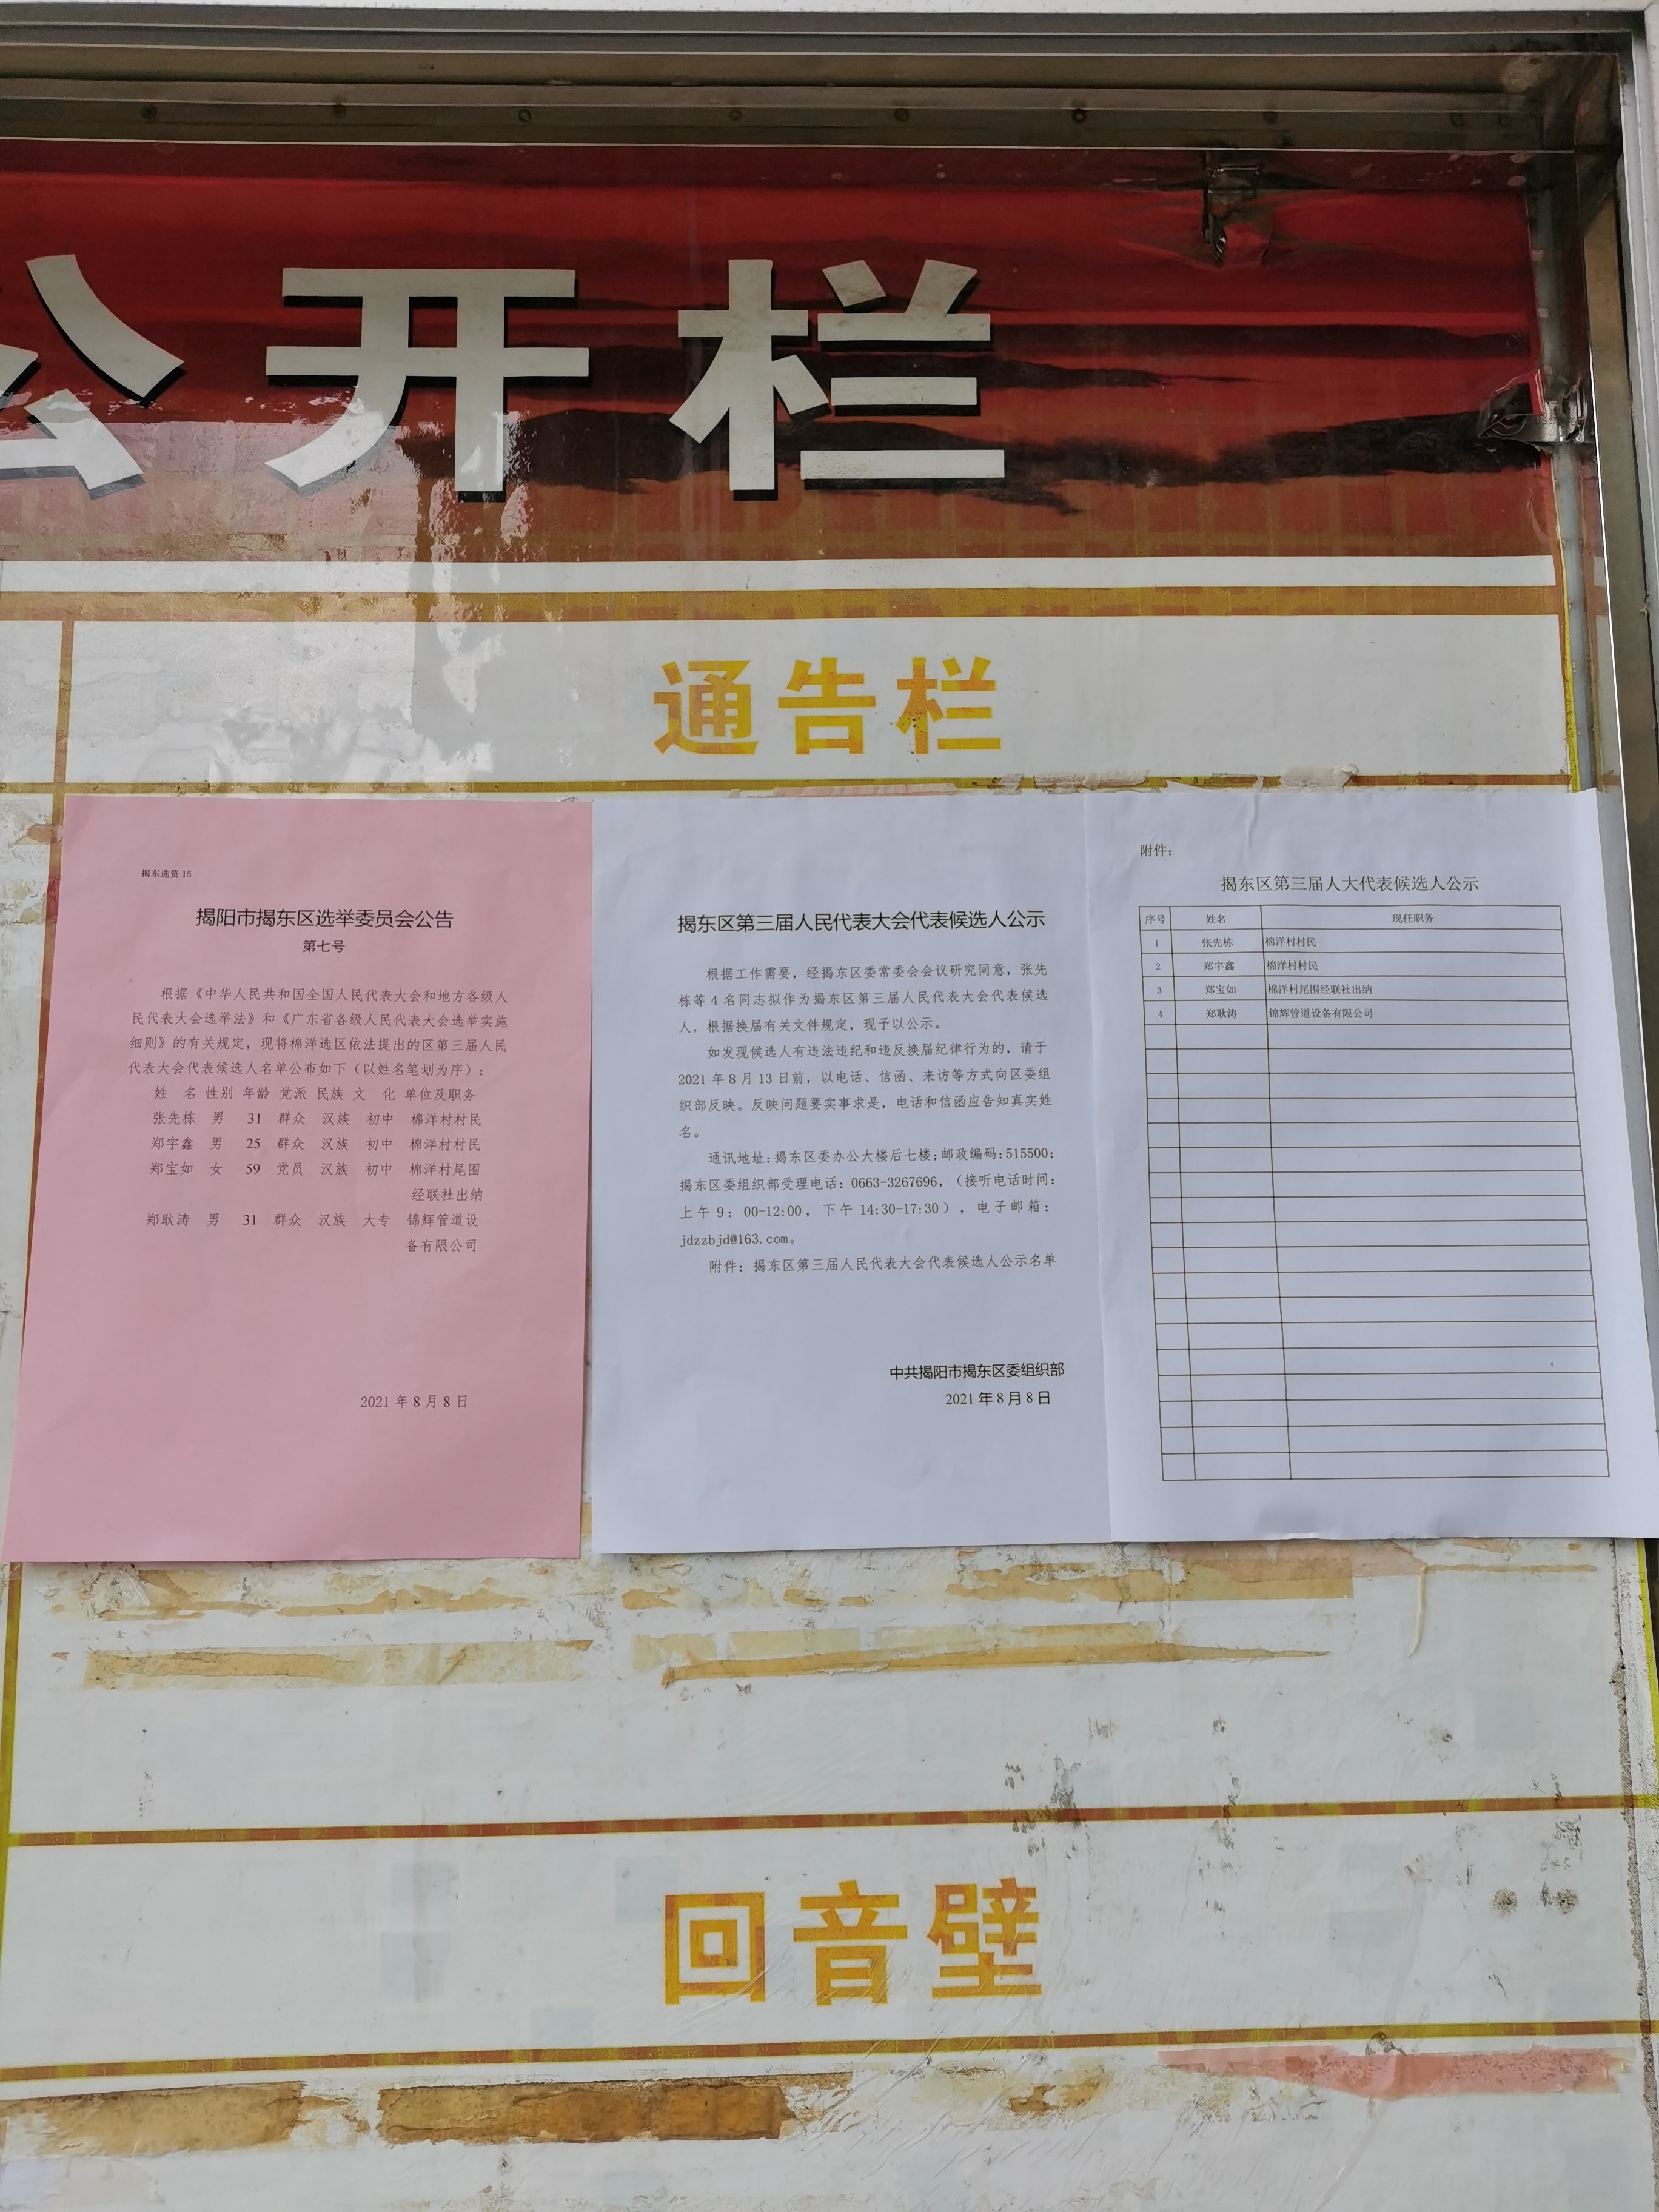 公开栏
通告栏
揭东选资 15
揭阳市揭东区选举委员会公告
第七号
根据《中华人民共和国全国人民代表大会和地方各级人
民代表大会选举法》和《广东省各级人民代表大会选举实施
细则》的有关规定，现将棉洋选区依法提出的区第三届人民
代表大会代表候选人名单公布如下（以姓名笔划为序）：
姓 名 性别 年龄 党派 民族 文 化 单位及职务
张先栋 男 31 群众 汉族 初中 棉洋村村民
郑宇鑫 男 25 群众 汉族 初中 棉洋村村民
郑宝如 女 59 党员 汉族 初中 棉洋村尾围
经联社出纳
郑耿涛 男 31 群众 汉族 大专 锦辉管道设
备有限公司
2021 年 8 月 8 日
揭东区第三届人民代表大会代表候选人公示
根据工作需要，经揭东区委常委会会议研究同意，张先
栋等 4 名同志拟作为揭东区第三届人民代表大会代表候选
人，根据换届有关文件规定，现予以公示。
如发现候选人有违法违纪和违反换届纪律行为的，请于
2021 年 8 月 13 日前，以电话、信函、来访等方式向区委组
织部反映。反映问题要实事求是，电话和信函应告知真实姓
名。
通讯地址:揭东区委办公大楼后七楼;邮政编码:515500;
揭东区委组织部受理电话：0663-3267696，（接听电话时间：
上午 9：00-12:00，下午 14:30-17:30），电子邮箱：
jdzzbjd@163.com。
附件：揭东区第三届人民代表大会代表候选人公示名单
中共揭阳市揭东区委组织部
2021 年 8 月 8 日
附件：
揭东区第三届人大代表候选人公示
序号 姓名 现任职务
1 张先栋 棉洋村村民
2 郑宇鑫 棉洋村村民
3 郑宝如 棉洋村尾围经联社出纳
4 郑耿涛 锦辉管道设备有限公司
回音壁